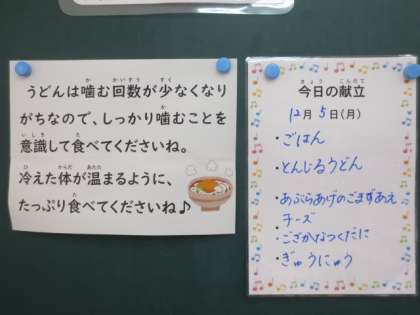 うどんは噛む回数が少なくなり
がちなので、しっかり噛むことを
意識して食べてくださいね。
冷えた体が温まるように、
たっぷり食べてくださいね♪
今日の献立
12月5日(月)
・ごはん
・とんじるうどん
・あぶらあげのごまずあえ
・チーズ
・ござかなつくだに
・ぎゅうにゅう